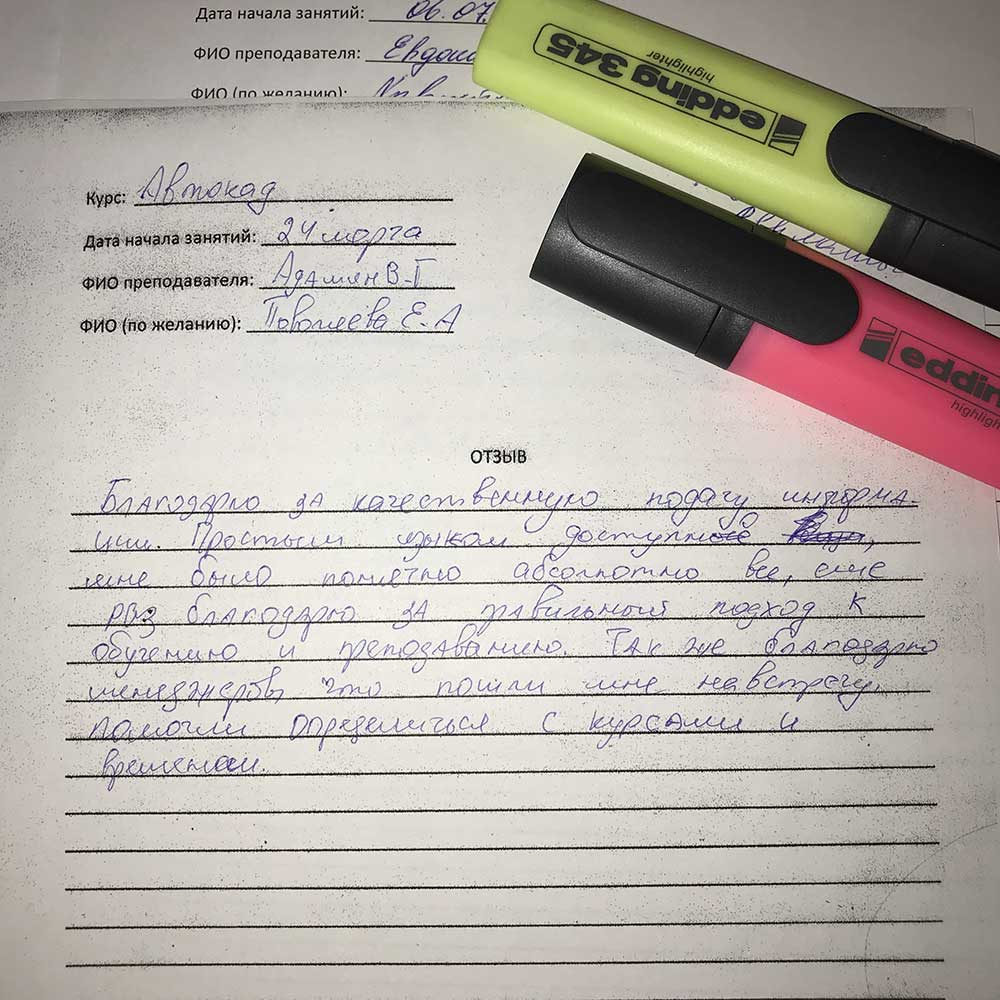 Дата начала занятий: 06.07
ФИО преподавателя:
ФИО (по желанию):
edding 345
highlighter
Курс: Автокад
Дата начала занятий: 24 марта
ФИО преподавателя: Адамян В-Г
ФИО (по желанию): Е-А
eddin
highligh
ОТЗЫВ
Благодарю за качественную подачу информа-
ции. Простым языком доступно,
мне было понятно абсолютно все, еще
раз благодарю за правильный подход к
обучению и преподаванию. Так же благодарю
менеджеров, что пошли мне навстречу,
помогли определиться с курсами и
временем.